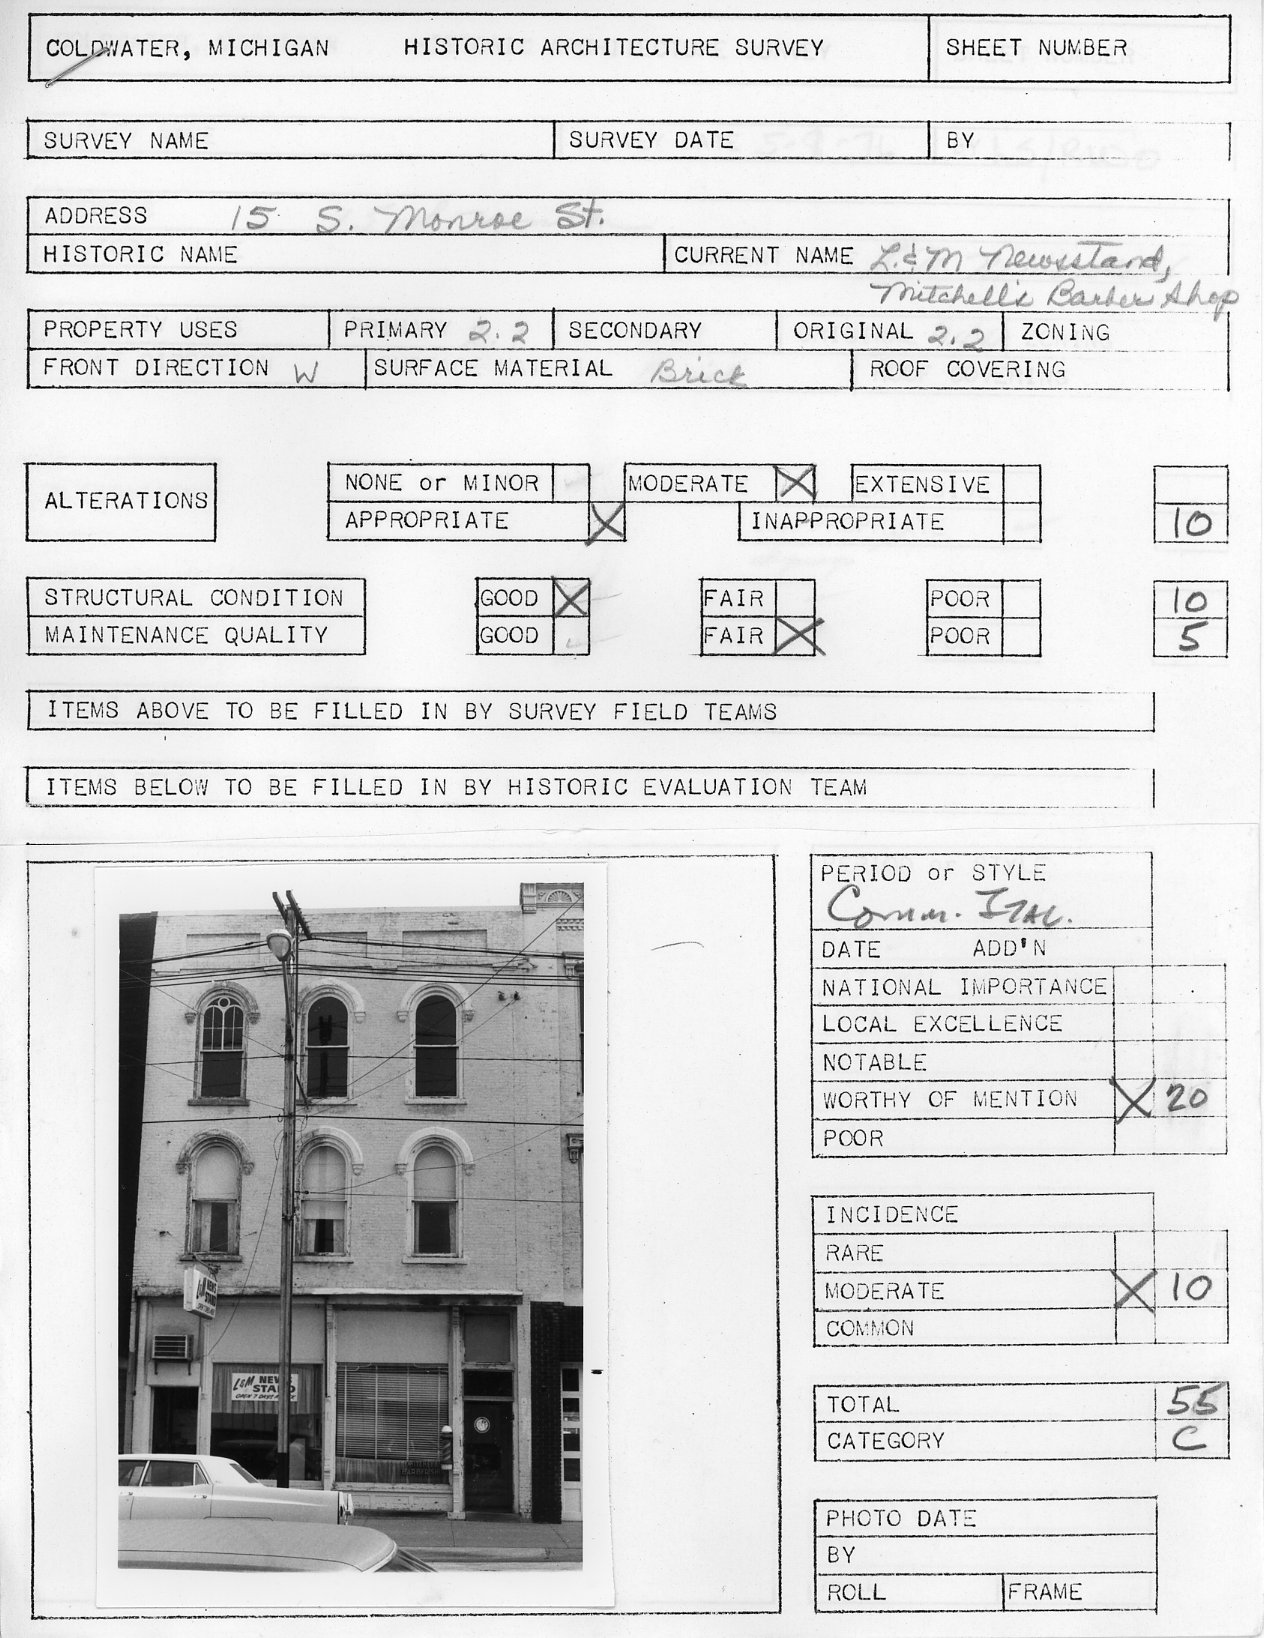 COLDWATER, MICHIGAN HISTORIC ARCHITECTURE SURVEY SHEET NUMBER
SURVEY NAME SURVEY DATE BY
ADDRESS 15 S. Monroe St.
HISTORIC NAME CURRENT NAME L.&M Newsstand,
Mitchell's Barber Shop
PROPERTY USES PRIMARY 2.2 SECONDARY ORIGINAL 2.2 ZONING
FRONT DIRECTION W SURFACE MATERIAL Brick ROOF COVERING
ALTERATIONS
NONE or MINOR MODERATE X EXTENSIVE
APPROPRIATE X INAPPROPRIATE 10
STRUCTURAL CONDITION GOOD X FAIR POOR 10
MAINTENANCE QUALITY GOOD FAIR X POOR 5
ITEMS ABOVE TO BE FILLED IN BY SURVEY FIELD TEAMS
ITEMS BELOW TO BE FILLED IN BY HISTORIC EVALUATION TEAM
L&M NEWS
STAND
L&M NEWS
STAND
OPEN 7 DAYS A
PERIOD or STYLE
Comm. ITAL.
DATE ADD'N
NATIONAL IMPORTANCE
LOCAL EXCELLENCE
NOTABLE
WORTHY OF MENTION X 20
POOR
INCIDENCE
RARE
MODERATE X 10
COMMON
TOTAL 55
CATEGORY C
PHOTO DATE
BY
ROLL FRAME